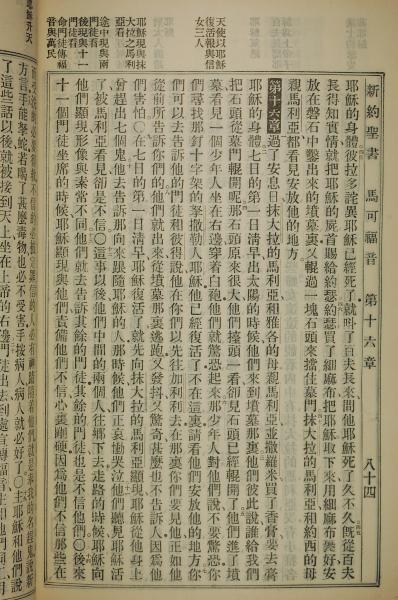 新約聖書 馬可福音 第十六章 八十四
耶穌的身體彼拉多詫異耶穌已經死了就叫了百夫長來問他耶穌死了久不久旣從百夫
長得知實情就把耶穌的屍首賜給約瑟約瑟買了細麻布把耶穌取下來用細麻布裹好安
放在磐石中鑿出來的墳墓裏又輥過一塊石頭來擋住墓門抹大拉的馬利亞和約西的母
親馬利亞都看見安放他的地方
第十六章過了安息日抹大拉的馬利亞和雅各的母親馬利亞並撒羅米買了香膏要去膏
耶穌的身體七日的第一日淸早出太陽的時候他們來到墳墓那裏他們彼此說誰給我們
把石頭從墓門輥開呢那石頭原來很大他們擡頭一看卻見石頭已經輥開了他們進了墳
墓看見一個少年人坐在右邊穿着白袍他們就驚恐起來那少年人對他們說不要驚恐你
們尋找那釘十字架的拏撒勒人耶穌他已經復活了不在這裏請看他們安放他的地方你
們可以去吿訴他的門徒和彼得說他在你們以先往加利利去在那裏你們要見他正如他
從前所吿訴你們的他們就出來從墳墓那裏逃跑又發抖又驚奇甚麼也不吿訴人因爲他
們害怕○在七日的第一日淸早耶穌復活了就先向抹大拉的馬利亞顯現耶穌從他身上
曾趕出七個鬼他去吿訴那向來跟隨耶穌的人那時候他們正哀慟哭泣他們聽見耶穌活
了被馬利亞看見卻是不信○這事以後他們中間的兩個人往鄉下去走路的時候耶穌向
他們顯現形像與素常不同他們就去吿訴其餘的門徒其餘的門徒也是不信他們○後來
十一個門徒坐席的時候耶穌顯現與他們責備他們不信心裏剛硬因爲他們不信那些在
天使以耶穌
復活報與信
女三人
耶穌現與抹
大拉之馬利
亞看
途中現與兩
門徒看
後現與十一
門徒看
命門徒傳福
音與萬民
方言手能拏蛇若喝了甚麼毒物也必不受害手按病人病人就必好了○主耶穌和他們說
了這些話以後就被接到天上坐在上帝的右邊門徒出去到處宣傳福音主和他們同工用